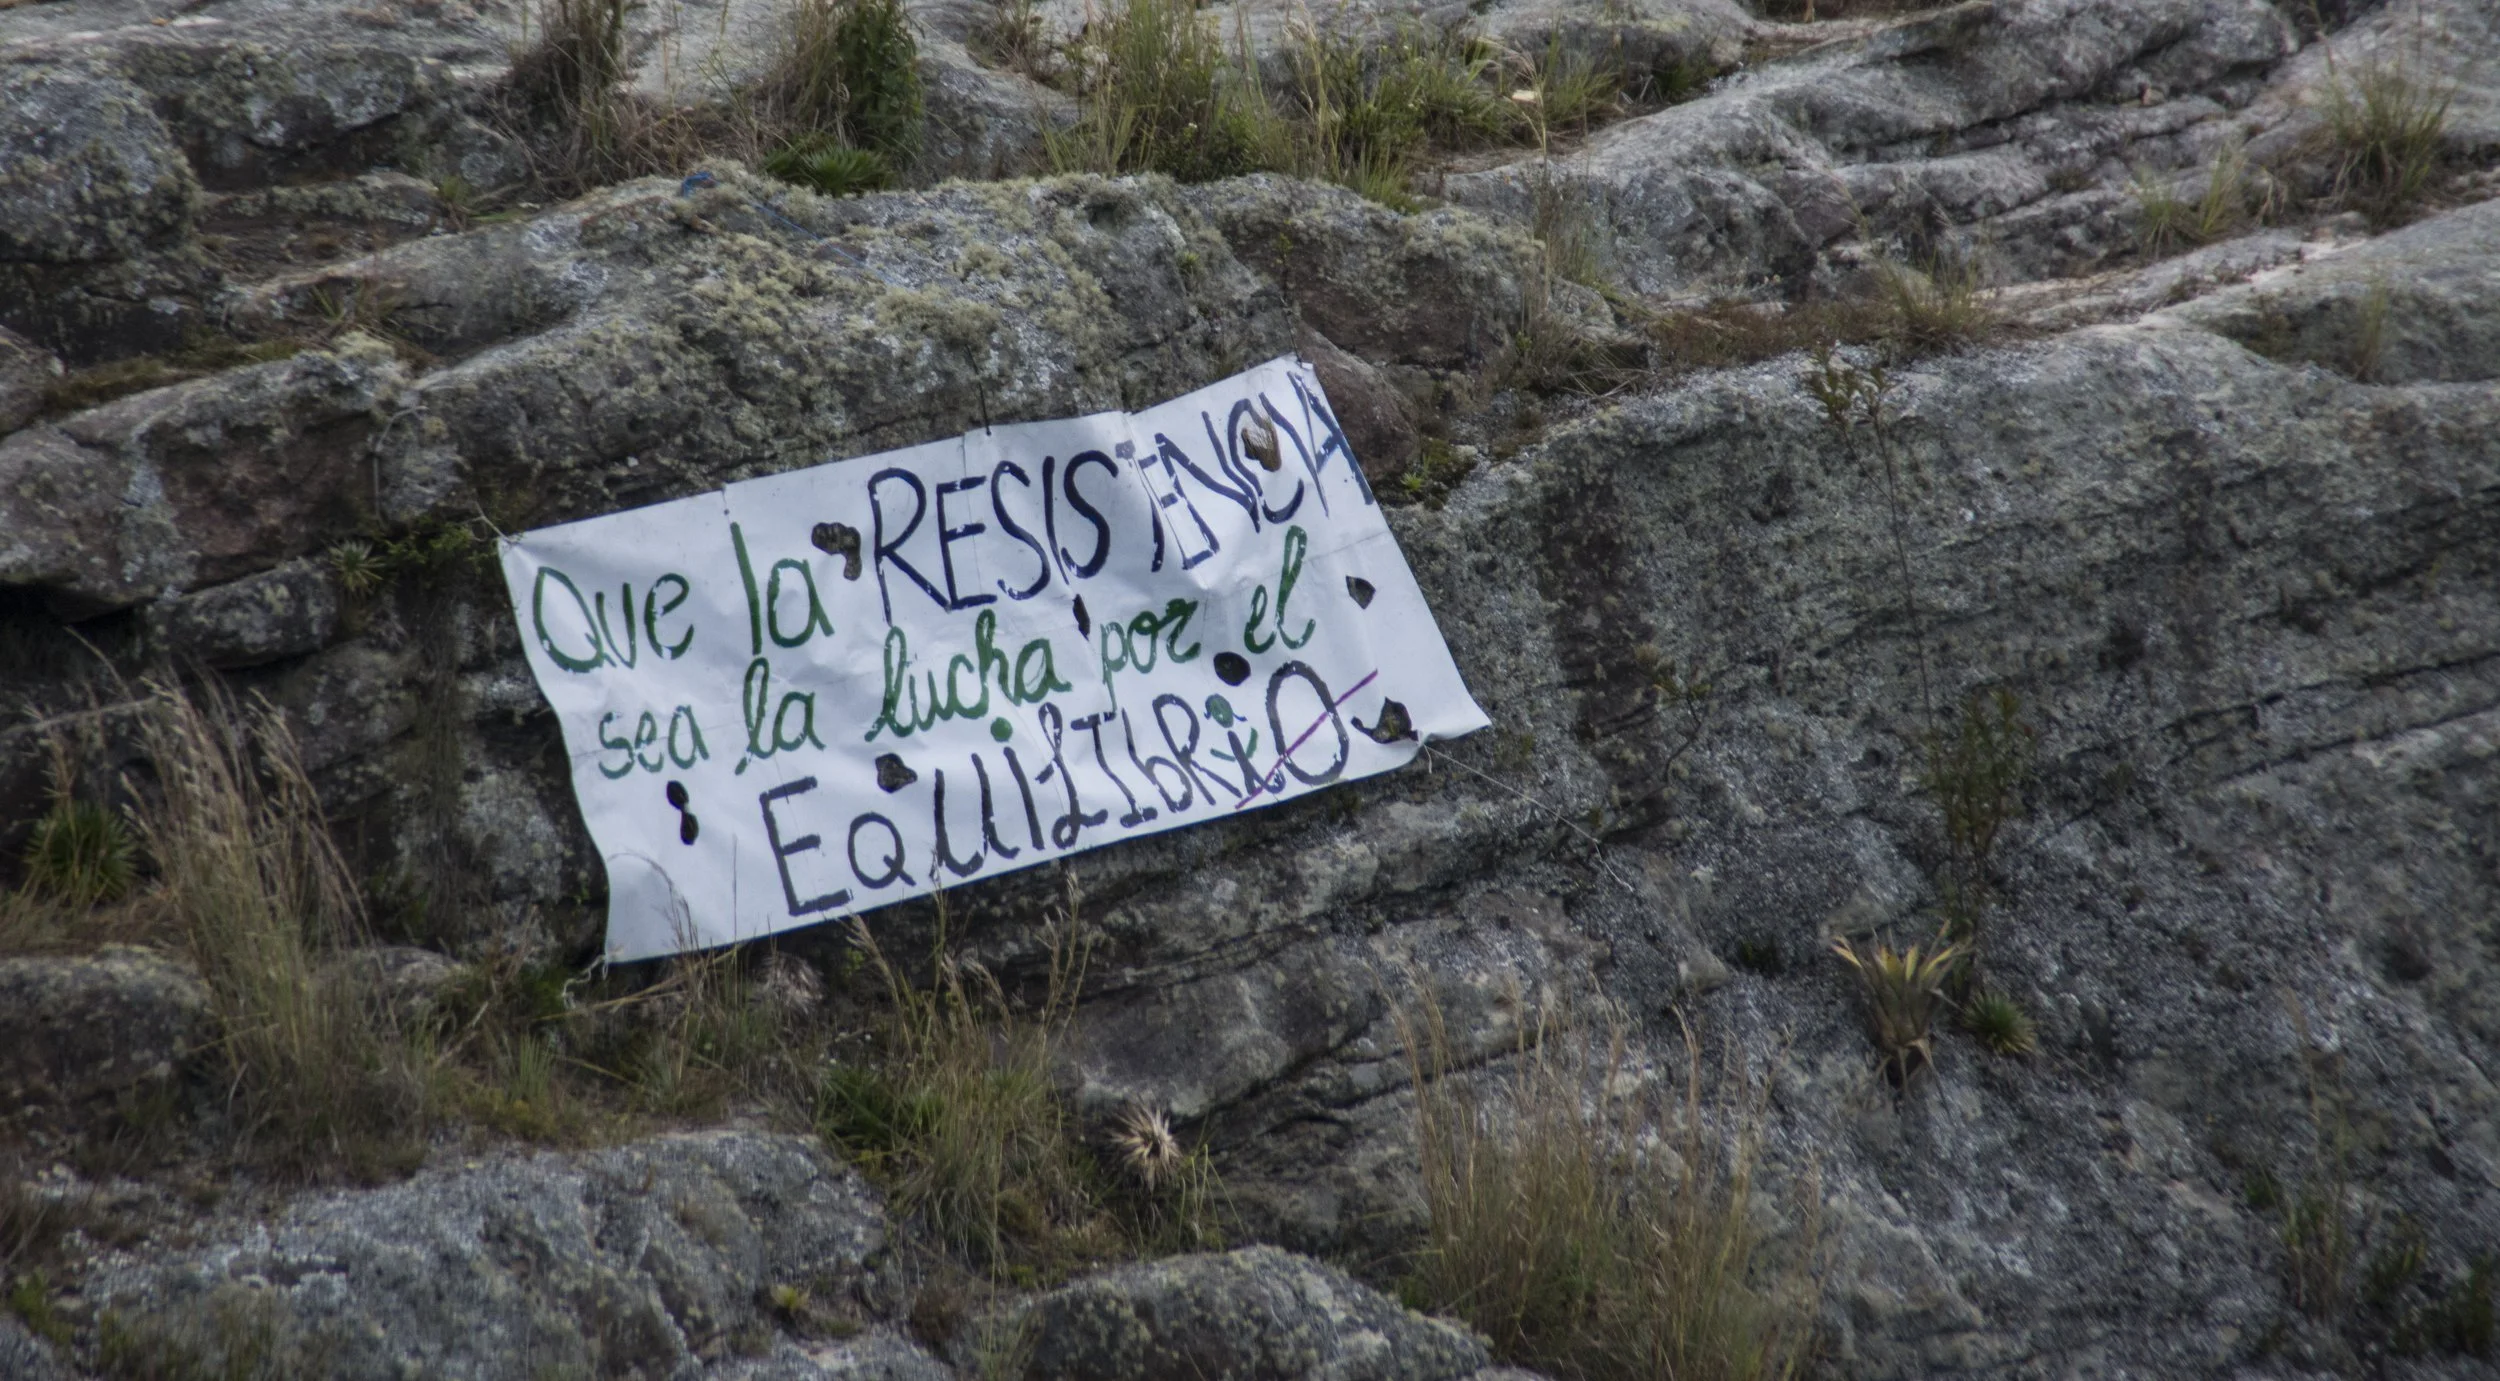 Que la RESISTENCIA
sea la lucha por el
EQUILIBRIO